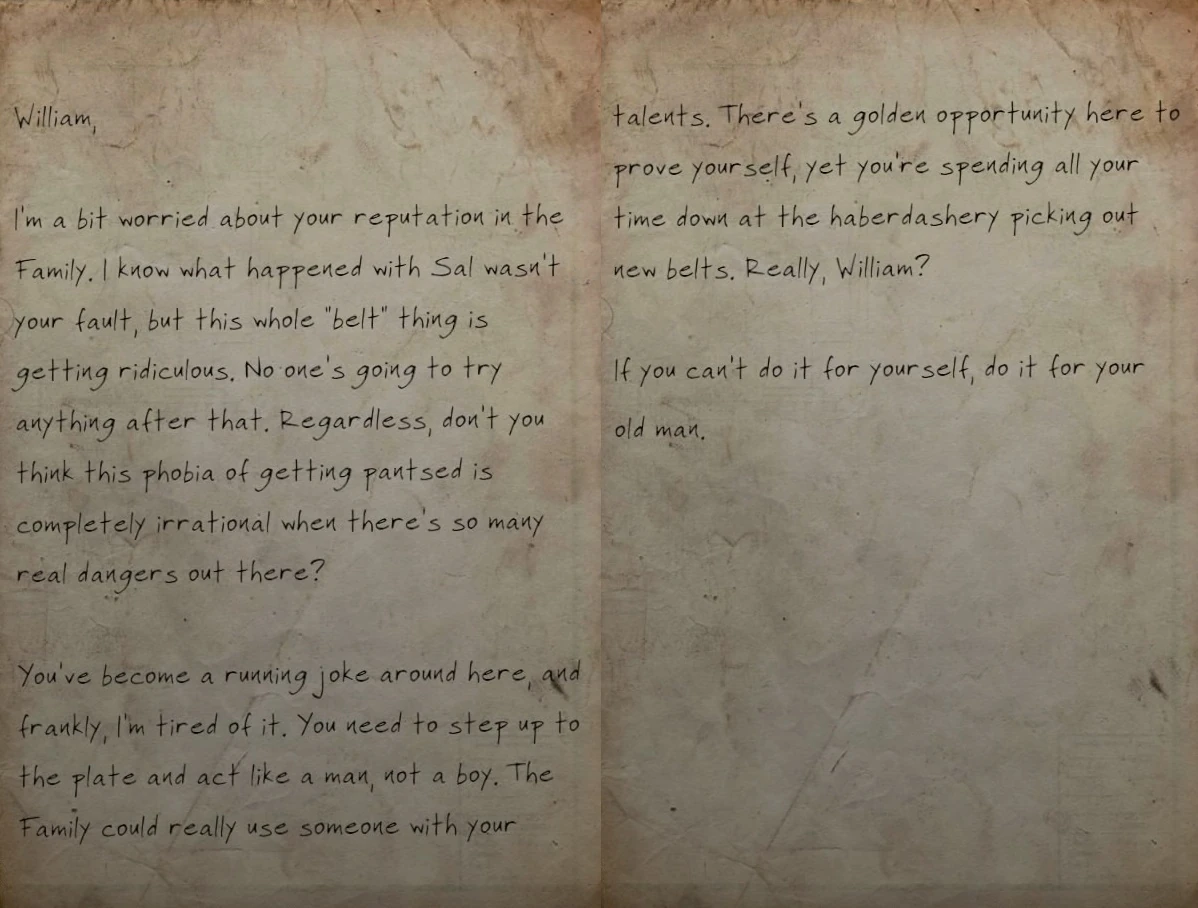 William,
I'm a bit worried about your reputation in the
Family. I know what happened with Sal wasn't
your fault, but this whole "belt" thing is
getting ridiculous. No one's going to try
anything after that. Regardless, don't you
think this phobia of getting pantsed is
completely irrational when there's so many
real dangers out there?
You've become a running joke around here, and
frankly, I'm tired of it. You need to step up to
the plate and act like a man, not a boy. The
Family could really use someone with your
talents. There's a golden opportunity here to
prove yourself, yet you're spending all your
time down at the haberdashery picking out
new belts. Really, William?
If you can't do it for yourself, do it for your
old man.